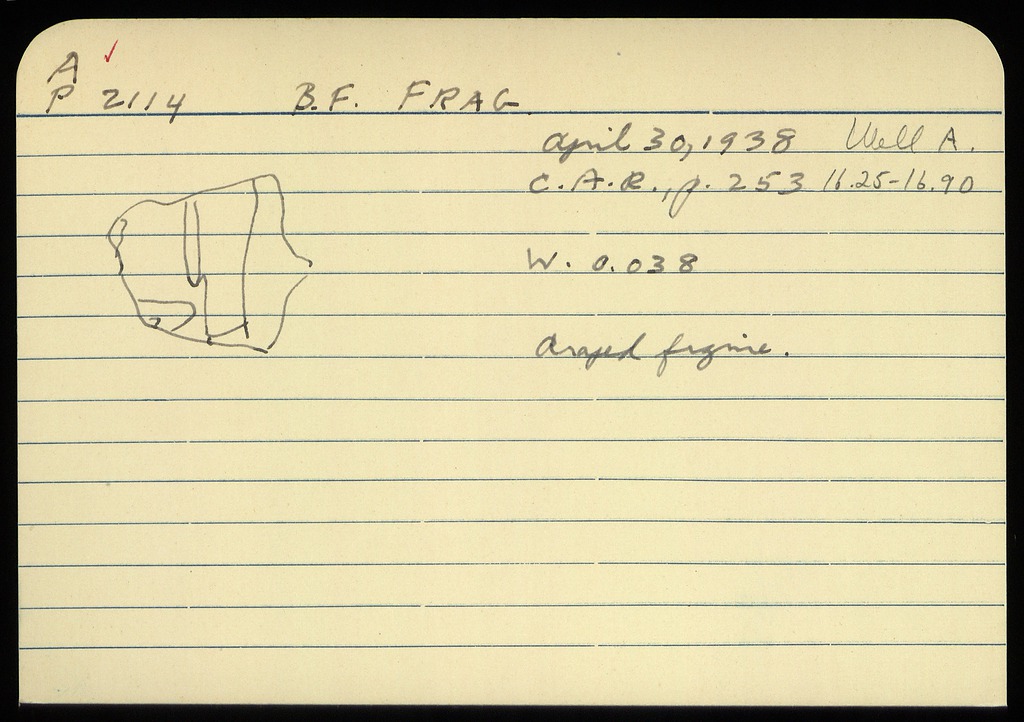 A ✓
P 2114 B.F. FRAG
April 30, 1938 Well A.
C.A.R., p. 253 16.25-16.90
W. 0.038
draped figure.